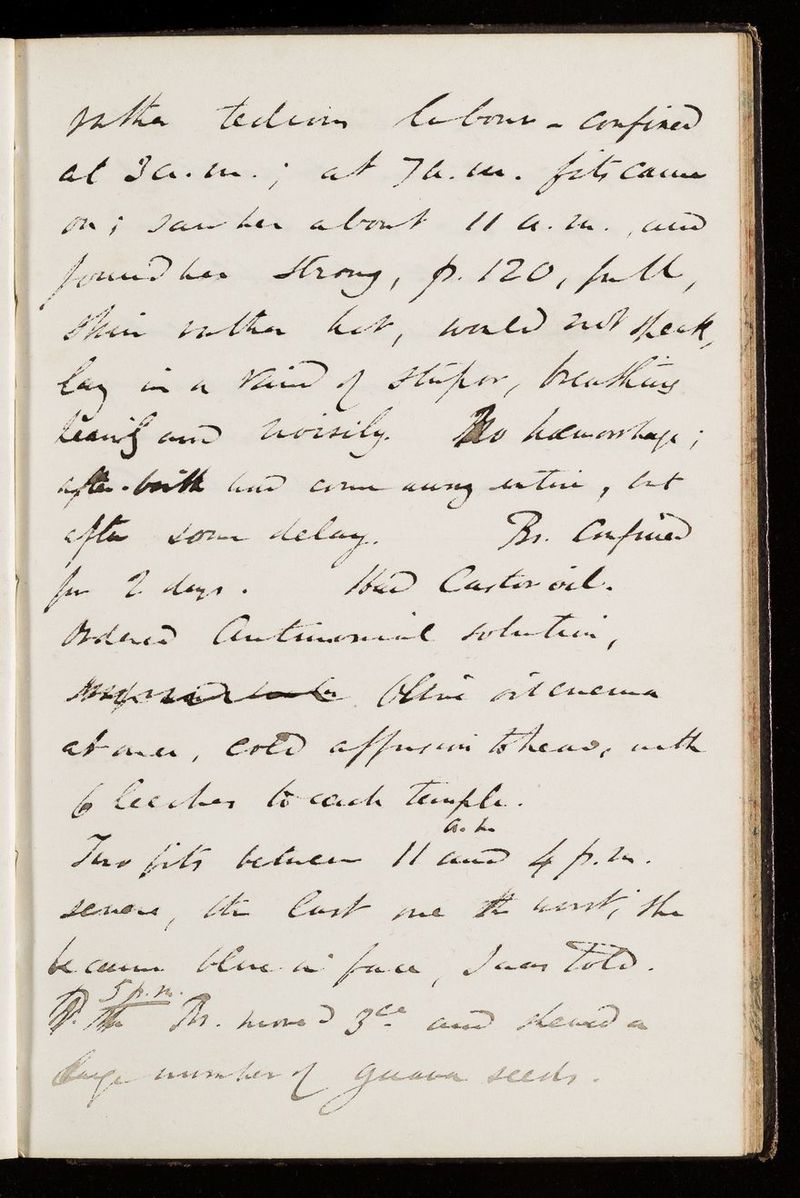 rather tedious labour - confined
at 3 a.m.; at 7 a.m. fits came
on; saw her about 11 a.m., and
found her strong, p. 120, full,
skin rather hot, would not speak,
lay in a kind of stupor, breathing
heavily and noisily. No hæmorrhage;
after-birth had come away entire, but
after some delay. Bs. Confined
for 2 days. Had Castor oil.
Ordered Antimonial solution,
Olive oil enema
at once, cold affusion to head, with
6 leeches to each temple.
a.m.
Two fits between 11 and 4 p.m.
severe, the last one the worst; she
became blue in face, I was told.
5 p.m.
Bs. moved 3ce and shewed a
large number of guava seeds.